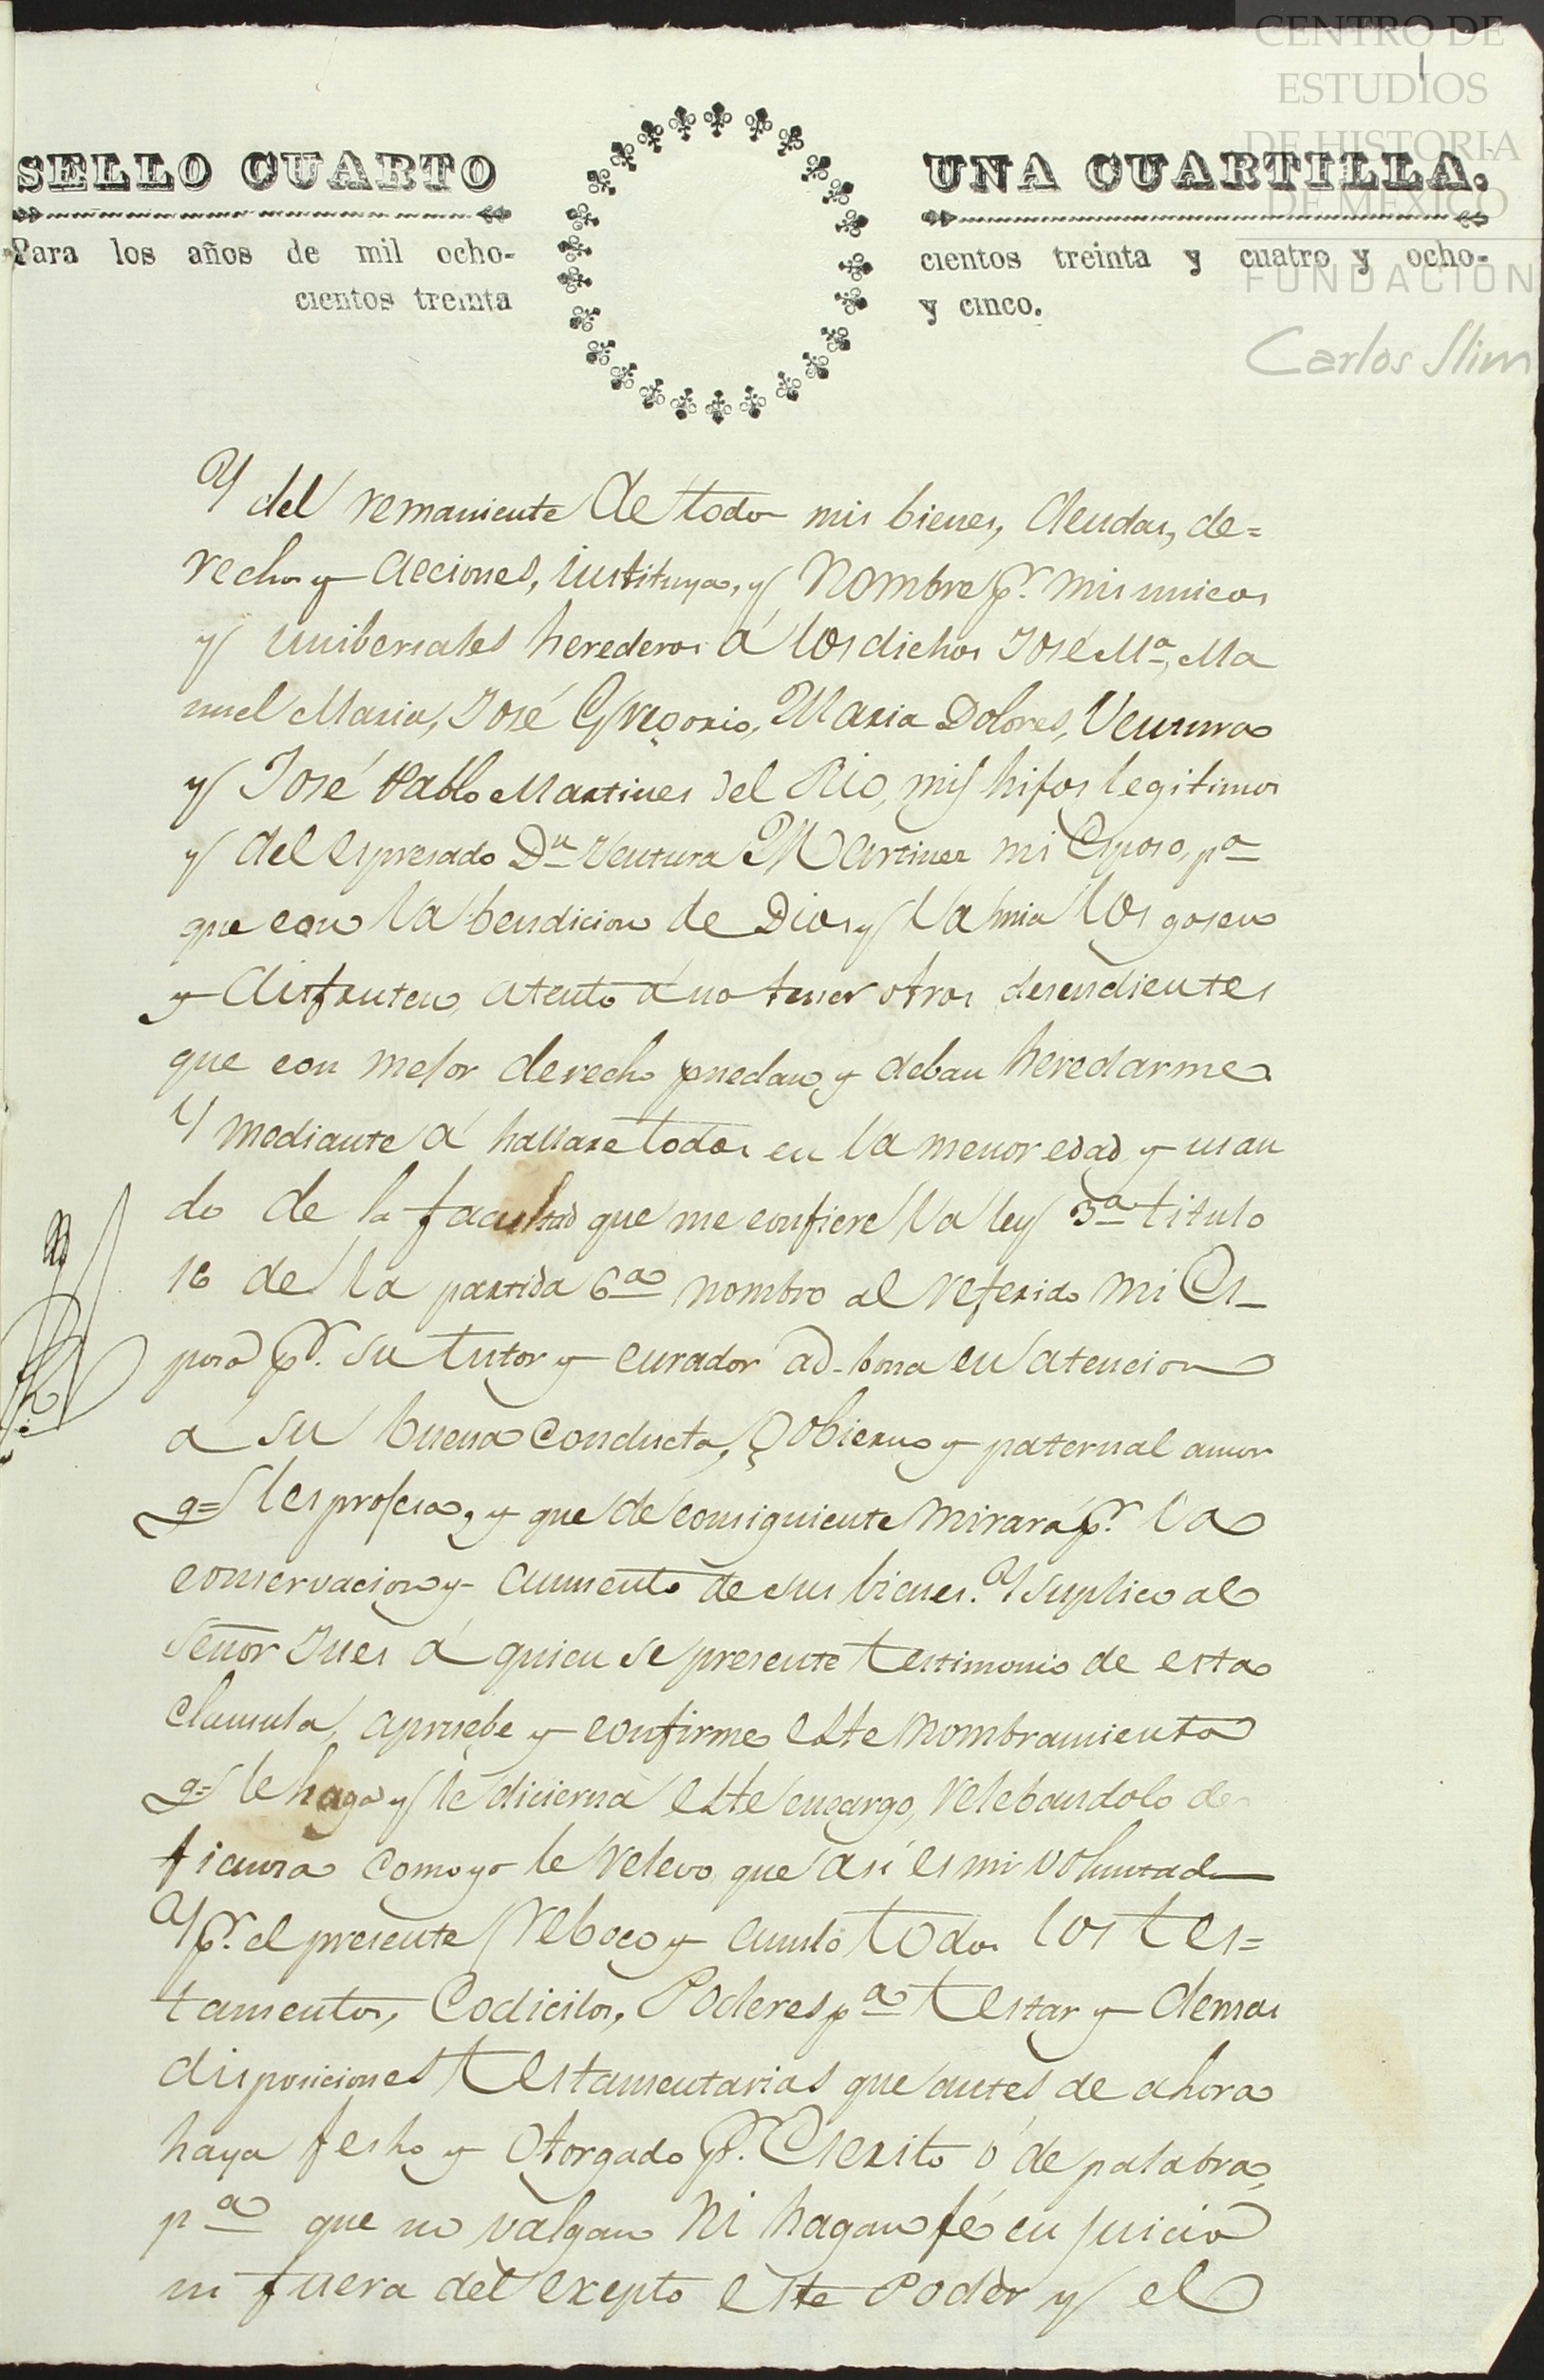 CENTRO DE
ESTUDIOS
DE HISTORIA
DE MÉXICO
FUNDACIÓN
Carlos Slim
1
SELLO CUARTO
UNA CUARTILLA.
Para los años de mil ocho-
cientos treinta
cientos treinta y cuatro y ocho-
y cinco.
Y del remaniente de todos mis bienes, deudas, de=
rechos y acciones, instituya, y nombre pr. mis unicos
y unibersales herederos á los dichos José Ma., Ma
nuel Maria, José Gregorio, Maria Dolores, Ventura
y José Pablo Martines del Rio, mis hijos legitimos
y del espresado Dn Ventura Martinez mi Esposo, pa
que con la bendicion de Dios y la mia los gosen
y disfruten, atento á no tener otros desendientes
que con mejor derecho puedan y deban heredarme
Y mediante á hallarse todos en la menor edad y usan
do de la facultad que me confiere la ley 3a titulo
16 de la partida 6a nombro al referido mi Es_
poso pr. su tutor y curador ad-bona en atencion
a su buena conducta, gobierno y paternal amor
q= les profesa, y que de consiguiente mirará pr. la
conservacion y aumento de sus bienes. Y suplico al
Señor Jues á quien se presente testimonio de esta
clausula, apruebe y confirme este nombramiento
q= le hago y le dicierna este encargo, relebandolo de
fianza como yo le relevo que así es mi voluntad
Y pr. el presente reboco y anulo todos los tes=
tamentos, Codicilos, Poderes pa testar y demas
disposiciones testamentarias que antes de ahora
haya fecho y otorgado pr. Escrito ó de palabra,
pa que no valgan ni hagan fé en juicio
ni fuera del exepto este Poder y el